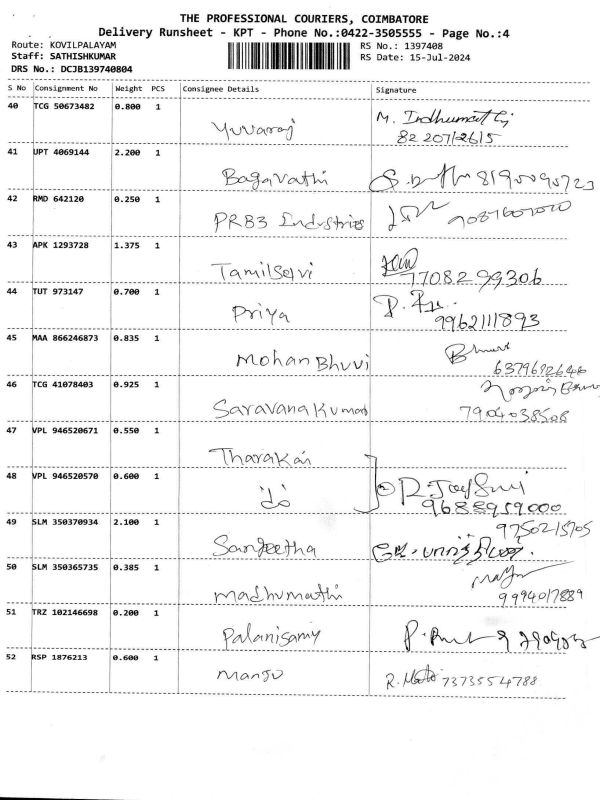 THE PROFESSIONAL COURIERS, COIMBATORE
Delivery Runsheet - KPT - Phone No.:0422-3505555 - Page No.:4
Route: KOVILPALAYAM
Staff: SATHISHKUMAR
DRS No.: DCJB139740804
RS No.: 1397408
RS Date: 15-Jul-2024
S No Consignment No Weight PCS Consignee Details Signature
40 TCG 50673482 0.800 1
Yuvaraj M. Indhumathi
82 207/2615
41 UPT 4069144 2.200 1
Bagavathi
42 RMD 642120 0.250 1
PRB3 Industries
43 APK 1293728 1.375 1
Tamilselvi 77082 99306
44 TUT 973147 0.700 1
Priya 9962111893
45 MAA 866246873 0.835 1
Mohan Bhuvi
46 TCG 41078403 0.925 1
Saravana Kumar 7904038508
47 VPL 946520671 0.550 1
Tharakai
48 VPL 946520570 0.600 1
9688959000
49 SLM 350370934 2.100 1
9750215705
Sangeetha
50 SLM 350365735 0.385 1
Madhumathi 9994017889
51 TRZ 102146698 0.200 1
Palanisamy
52 RSP 1876213 0.600 1
Manju 7373554788